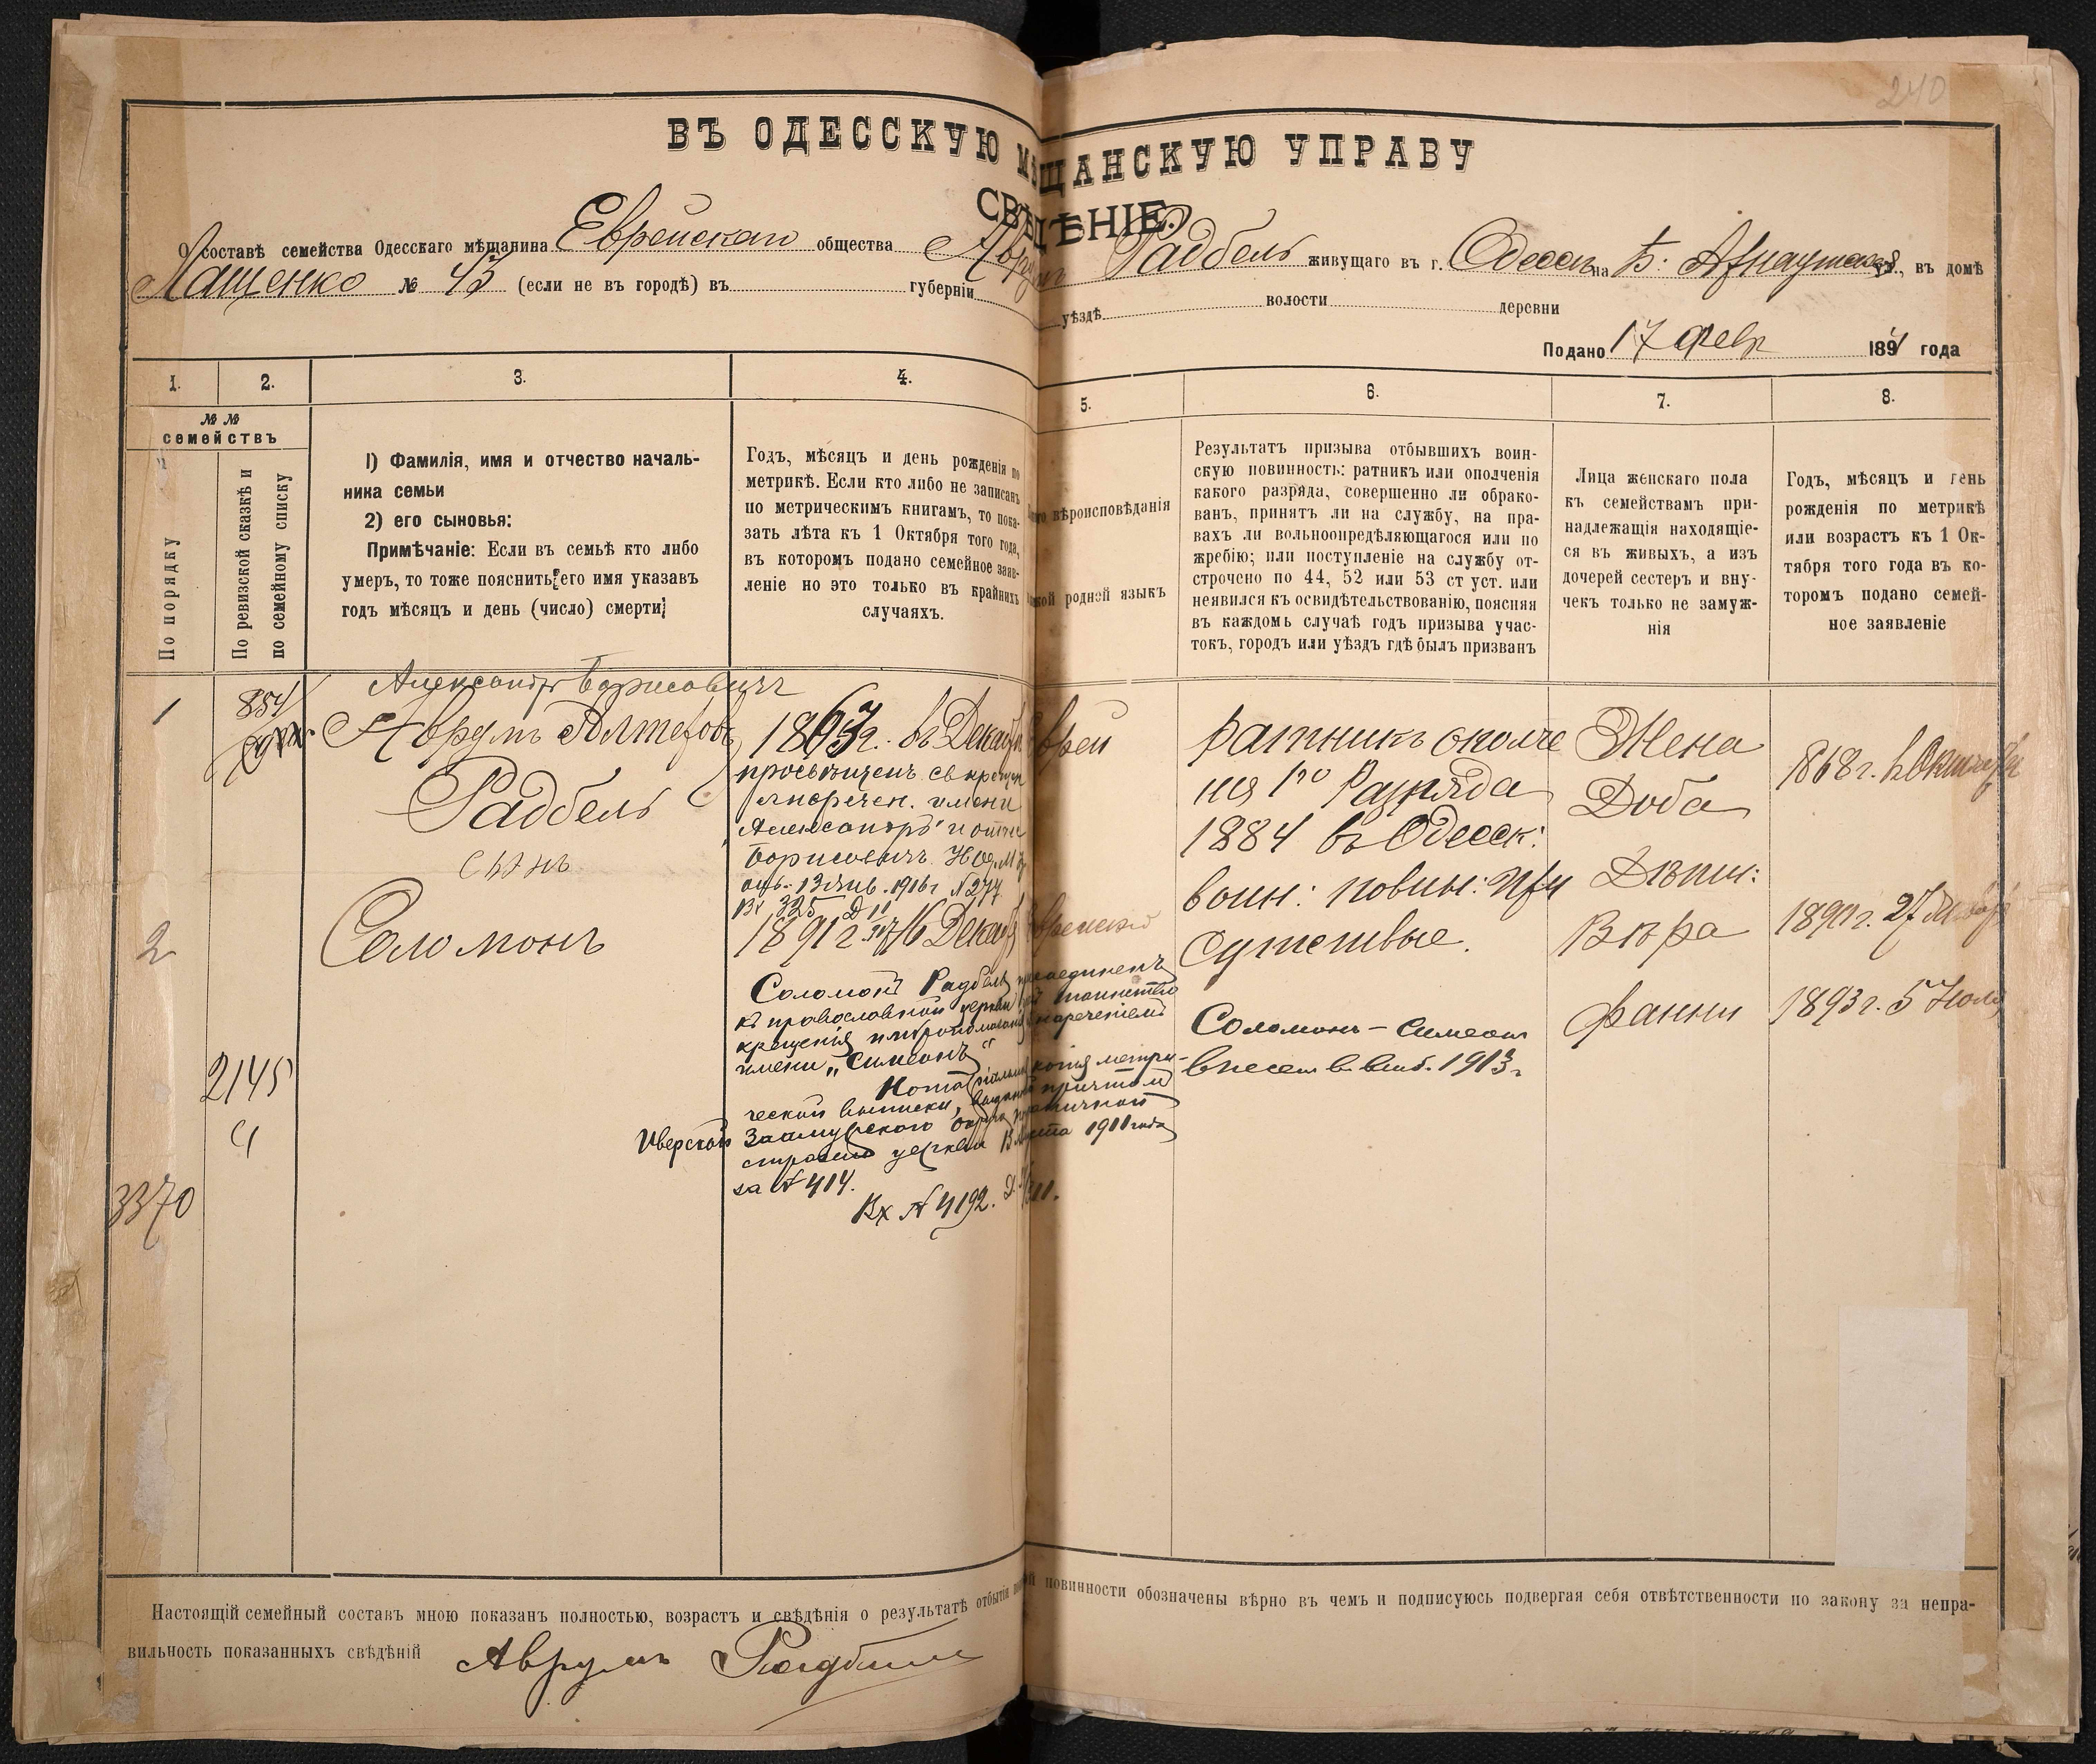 240
ВЪ ОДЕССКУЮ МѢЩАНСКУЮ УПРАВУ
СВѢДѢНІЕ.
О составѣ семейства Одесскаго мѣщанина Еврейскаго общества Аврумъ Радбель живущаго въ г. Одессѣ на Б. Арнаутской ул., въ домѣ
Лащенко № 43 (если не въ городѣ) въ губерніи уѣздѣ волости деревни
Подано 17 Февр 1894 года
1.
2.
3.
4.
5.
6.
7.
8.
№ №
семействъ
По порядку
По ревизской сказкѣ и
по семейному списку
1) Фамилія, имя и отчество началь-
ника семьи
2) его сыновья:
Примѣчаніе: Если въ семьѣ кто либо
умеръ, то тоже пояснить его имя указавъ
годъ мѣсяцъ и день (число) смерти;
Годъ, мѣсяцъ и день рожденія по
метрикѣ. Если кто либо не записанъ
по метрическимъ книгамъ, то пока-
зать лѣта къ 1 Октября того года,
въ которомъ подано семейное заяв-
леніе но это только въ крайнихъ
случаяхъ.
вѣроисповѣданія
родной языкъ
Результатъ призыва отбывшихъ воин-
скую повинность: ратникъ или ополченія
какого разряда, совершенно ли обрако-
ванъ, принятъ ли на службу, на пра-
вахъ ли вольноопредѣляющагося или по
жребію; или поступленіе на службу от-
строчено по 44, 52 или 53 ст уст. или
неявился къ освидѣтельствованію, поясняя
въ каждомь случаѣ годъ призыва учас-
токъ, городъ или уѣздъ гдѣ былъ призванъ
Лица женскаго пола
къ семействамъ при-
надлежащія находящіе-
ся въ живыхъ, а изъ
дочерей сестеръ и вну-
чекъ только не замуж-
нія
Годъ, мѣсяцъ и день
рожденія по метрикѣ
или возрастъ къ 1 Ок-
тября того года въ ко-
торомъ подано семей-
ное заявленіе
1
854
Александръ Борисовичъ
Аврумъ Алтеровъ
Радбель
сынъ
1863г. въ Декабрѣ
просвѣщенъ св крещен
и нареченъ. имени
Александръ и отч
Борисовичъ
13 Янв. 1916 г №277
Вх 325 Д 11
Еврей
ратникъ ополче
нія 1го Разряда
1884 въ Одесск:
воин: повин: при
сутствіе.
Жена
Доба
1868г. въ Октябрѣ
Дѣти:
Вѣра
1890г. 27
Фанни
1893г. 5
2
Соломонъ
1891г 16 Декабр
Еврейскій
Соломонъ Радбель присоединенъ
къ православной церкви чрез таинство
крещенія и миропомазанія съ нареченіемъ
имени „Симеонъ"
Нотаріальная копія метри-
ческой выписки, выданной причтомъ
Иверской Заамурскаго округа пограничной
стражи церкви 1911 года
за № 414.
Вх № 4192. Д. 11.
Соломонъ – Симеонъ
внесен в. 1913г
2145
Ч
3370
Настоящій семейный составъ мною показанъ полностью, возрастъ и свѣдѣнія о результатѣ отбытія повинности обозначены вѣрно въ чемъ и подписуюсь подвергая себя отвѣтственности по закону за непра-
вильность показанныхъ свѣдѣній Аврумъ Радбиль